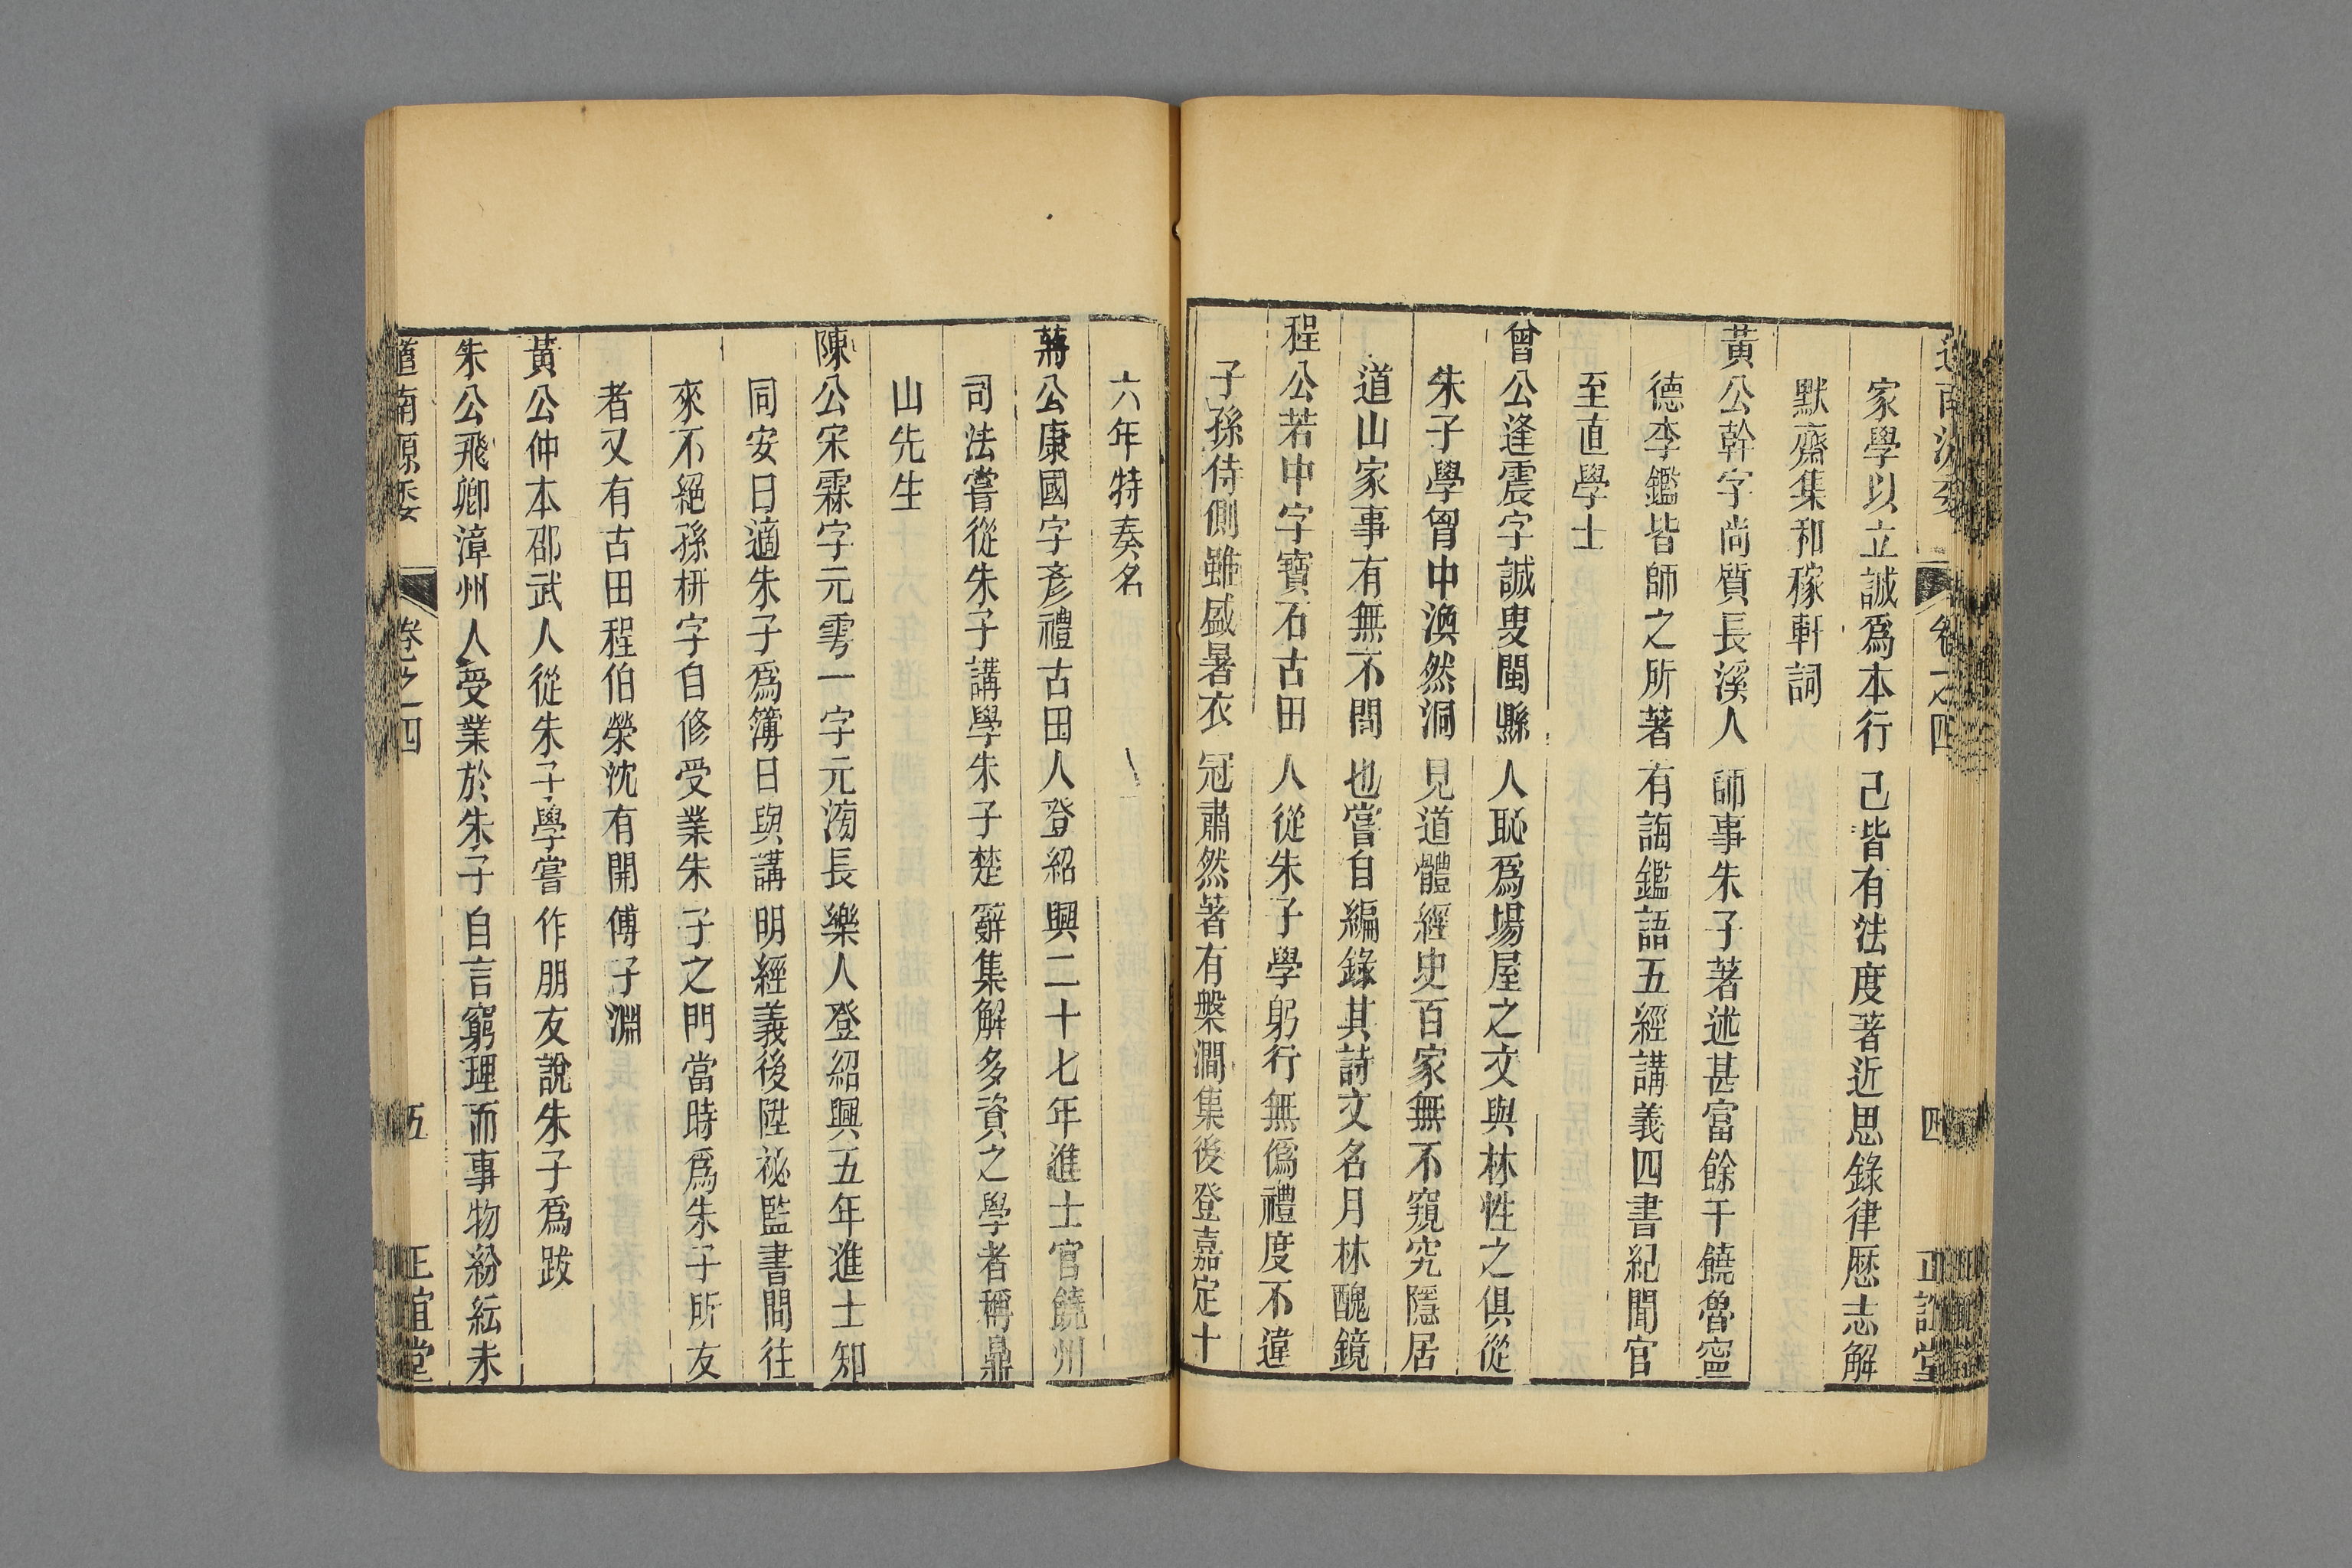 家學以立誠爲本行己皆有法度著近思錄律歷志解
默齋集和稼軒詞
黃公幹字尚質長溪人師事朱子著述甚富餘干饒魯寧
德李鑑皆師之所著有誨鑑語五經講義四書紀聞官
至直學士
曾公逢震字誠叟閩縣人恥爲場屋之文與林性之俱從
朱子學胷中渙然洞見道體經史百家無不窺究隱居
道山家事有無不問也嘗自編錄其詩文名月林醜鏡
程公若中字寶石古田人從朱子學躬行無僞禮度不違
子孫侍側雖盛暑衣冠肅然著有槃澗集後登嘉定十
六年特奏名
蔣公康國字彥禮古田人登紹興二十七年進士官饒州
司法嘗從朱子講學朱子楚辭集解多資之學者稱鼎
山先生
陳公宋霖字元雩一字元滂長樂人登紹興五年進士知
同安日適朱子爲簿日與講明經義後陞祕監書問往
來不絕孫枅字自修受業朱子之門當時爲朱子所友
者又有古田程伯榮沈有開傅子淵
黃公仲本邵武人從朱子學嘗作朋友說朱子爲跋
朱公飛卿漳州人受業於朱子自言窮理而事物紛紜未
道南原委
卷之四
五
正誼堂